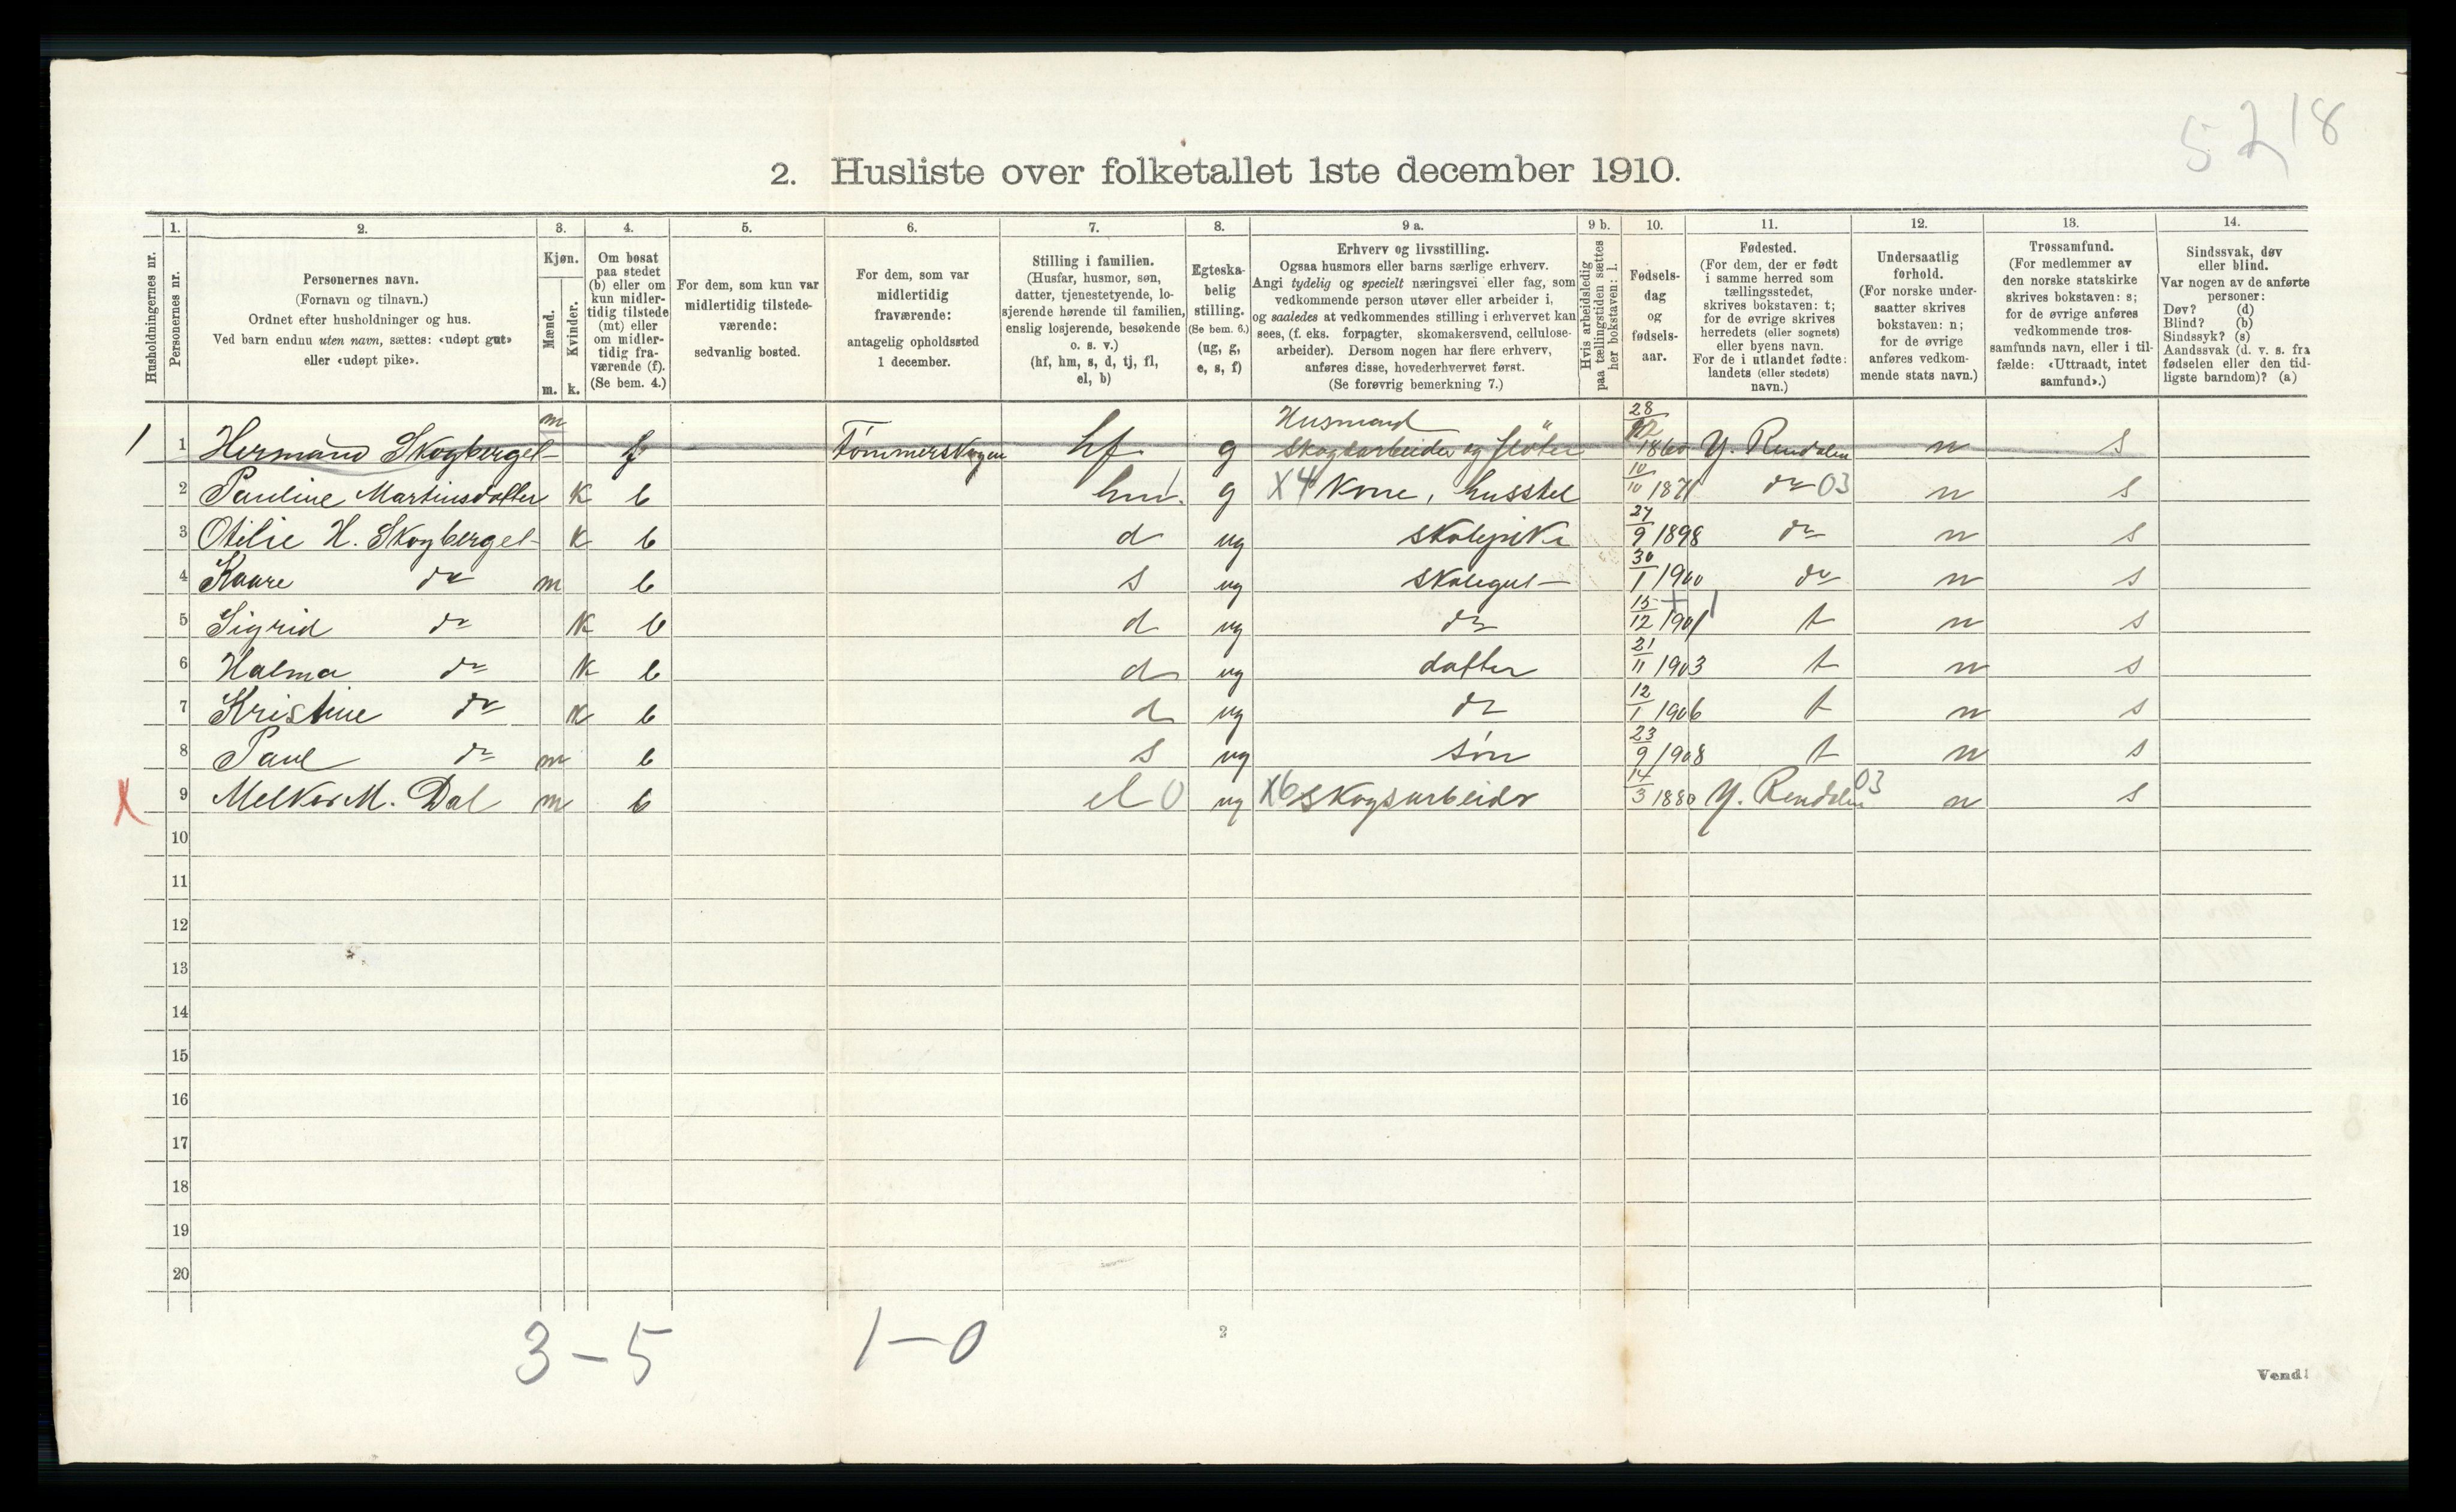 5 2 18
2. Husliste over folketallet 1ste december 1910.
1. 2. 3. 4. 5. 6. 7. 8. 9 a. 9 b. 10. 11. 12. 13. 14.
Husholdningernes nr.
Personernes nr.
Personernes navn.
(Fornavn og tilnavn.)
Ordnet efter husholdninger og hus.
Ved barn endnu uten navn, sættes: «udøpt gut»
eller «udøpt pike».
Kjøn.
Mænd.
m.
Kvinder.
k.
Om bosat
paa stedet
(b) eller om
kun midler-
tidig tilstede
(mt) eller
om midler-
tidig fra-
værende (f).
(Se bem. 4.)
For dem, som kun var
midlertidig tilstede-
værende:
sedvanlig bosted.
For dem, som var
midlertidig
fraværende:
antagelig opholdssted
1 december.
Stilling i familien.
(Husfar, husmor, søn,
datter, tjenestetyende, lo-
sjerende hørende til familien,
enslig losjerende, besøkende
o. s. v.)
(hf, hm, s, d, tj, fl,
el, b)
Egteska-
belig
stilling.
(Se bem. 6.)
(ug, g,
e, s, f)
Erhverv og livsstilling.
Ogsaa husmors eller barns særlige erhverv.
Angi tydelig og specielt næringsvei eller fag, som
vedkommende person utøver eller arbeider i,
og saaledes at vedkommendes stilling i erhvervet kan
sees, (f. eks. forpagter, skomakersvend, cellulose-
arbeider). Dersom nogen har flere erhverv,
anføres disse, hovederhvervet først.
(Se forøvrig bemerkning 7.)
Hvis arbeidsledig
paa tællingstiden sættes
her bokstaven: l.
Fødsels-
dag
og
fødsels-
aar.
Fødested.
(For dem, der er født
i samme herred som
tællingsstedet,
skrives bokstaven: t;
for de øvrige skrives
herredets (eller sognets)
eller byens navn.
For de i utlandet fødte:
landets (eller stedets)
navn.)
Undersaatlig
forhold.
(For norske under-
saatter skrives
bokstaven: n;
for de øvrige
anføres vedkom-
mende stats navn.)
Trossamfund.
(For medlemmer av
den norske statskirke
skrives bokstaven: s;
for de øvrige anføres
vedkommende tros-
samfunds navn, eller i til-
fælde: «Uttraadt, intet
samfund».)
Sindssvak, døv
eller blind.
Var nogen av de anførte
personer:
Døv? (d)
Blind? (b)
Sindssyk? (s)
Aandssvak (d. v. s. fra
fødselen eller den tid-
ligste barndom)? (a)
m Husmand 28
1 1 Hermand Skogberget f Tömmerskogen hf g skogsarbeider og flöter 12 1860 Y. Rendalen n s
2 Pauline Martinsdatter k b hm g X4 Kone, husstel 10/10 1871 do 03 n s
3 Otilie H. Skogberget k b d ug skolepike 27/9 1898 do n s
4 Kaare do m b s ug skolegut 30/1 1900 do n s
5 Sigrid do k b d ug do 15/12 1901 t n s
6 Halma do k b d ug datter 21/11 1903 t n s
7 Kristine do k b d ug do 12/1 1906 t n s
8 Paul do m b s ug sön 23/9 1908 t n s
X 9 Melker M. Dal m b el 0 ug X6 skogsarbeider 14/3 1880 Y. Rendalen 03 n s
10
11
12
13
14
15
16
17
18
19
20
3 – 5 1 – 0
2
Vend!